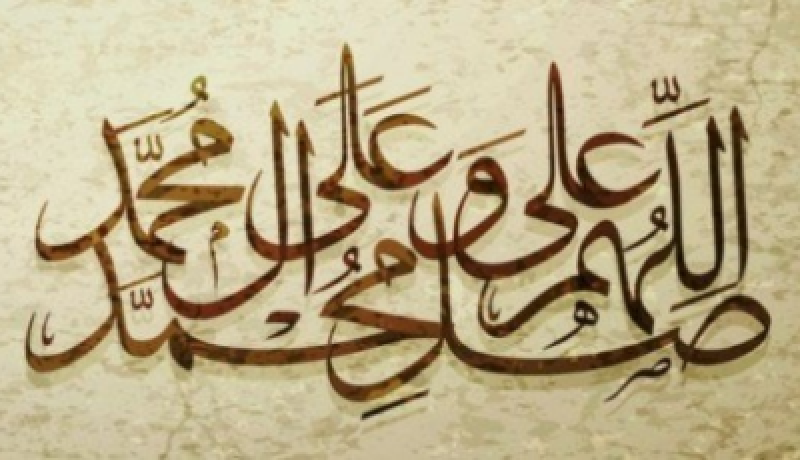 اللّٰهُمَّ صَلِّ عَلَى مُحَمَّدٍ وَ عَلَى آلِ مُحَمَّدٍ